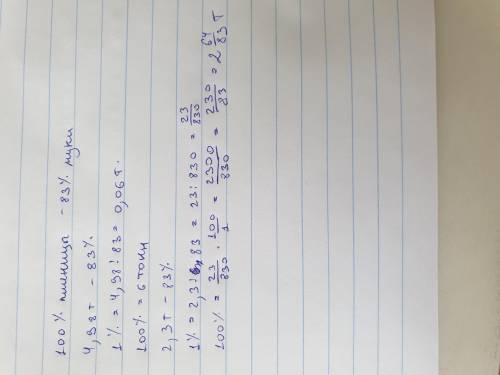 100% пшеницы - 83% муки
4,98т - 83%.
1% = 4,98 : 83 = 0,06 т.
100% = 6 тонн
2,3т - 83%
1% = 2,3 : 83 = 23 : 830 = 23/830
100% = 23/830 · 100/1 = 2300/830 = 230/83 = 2 64/83 т